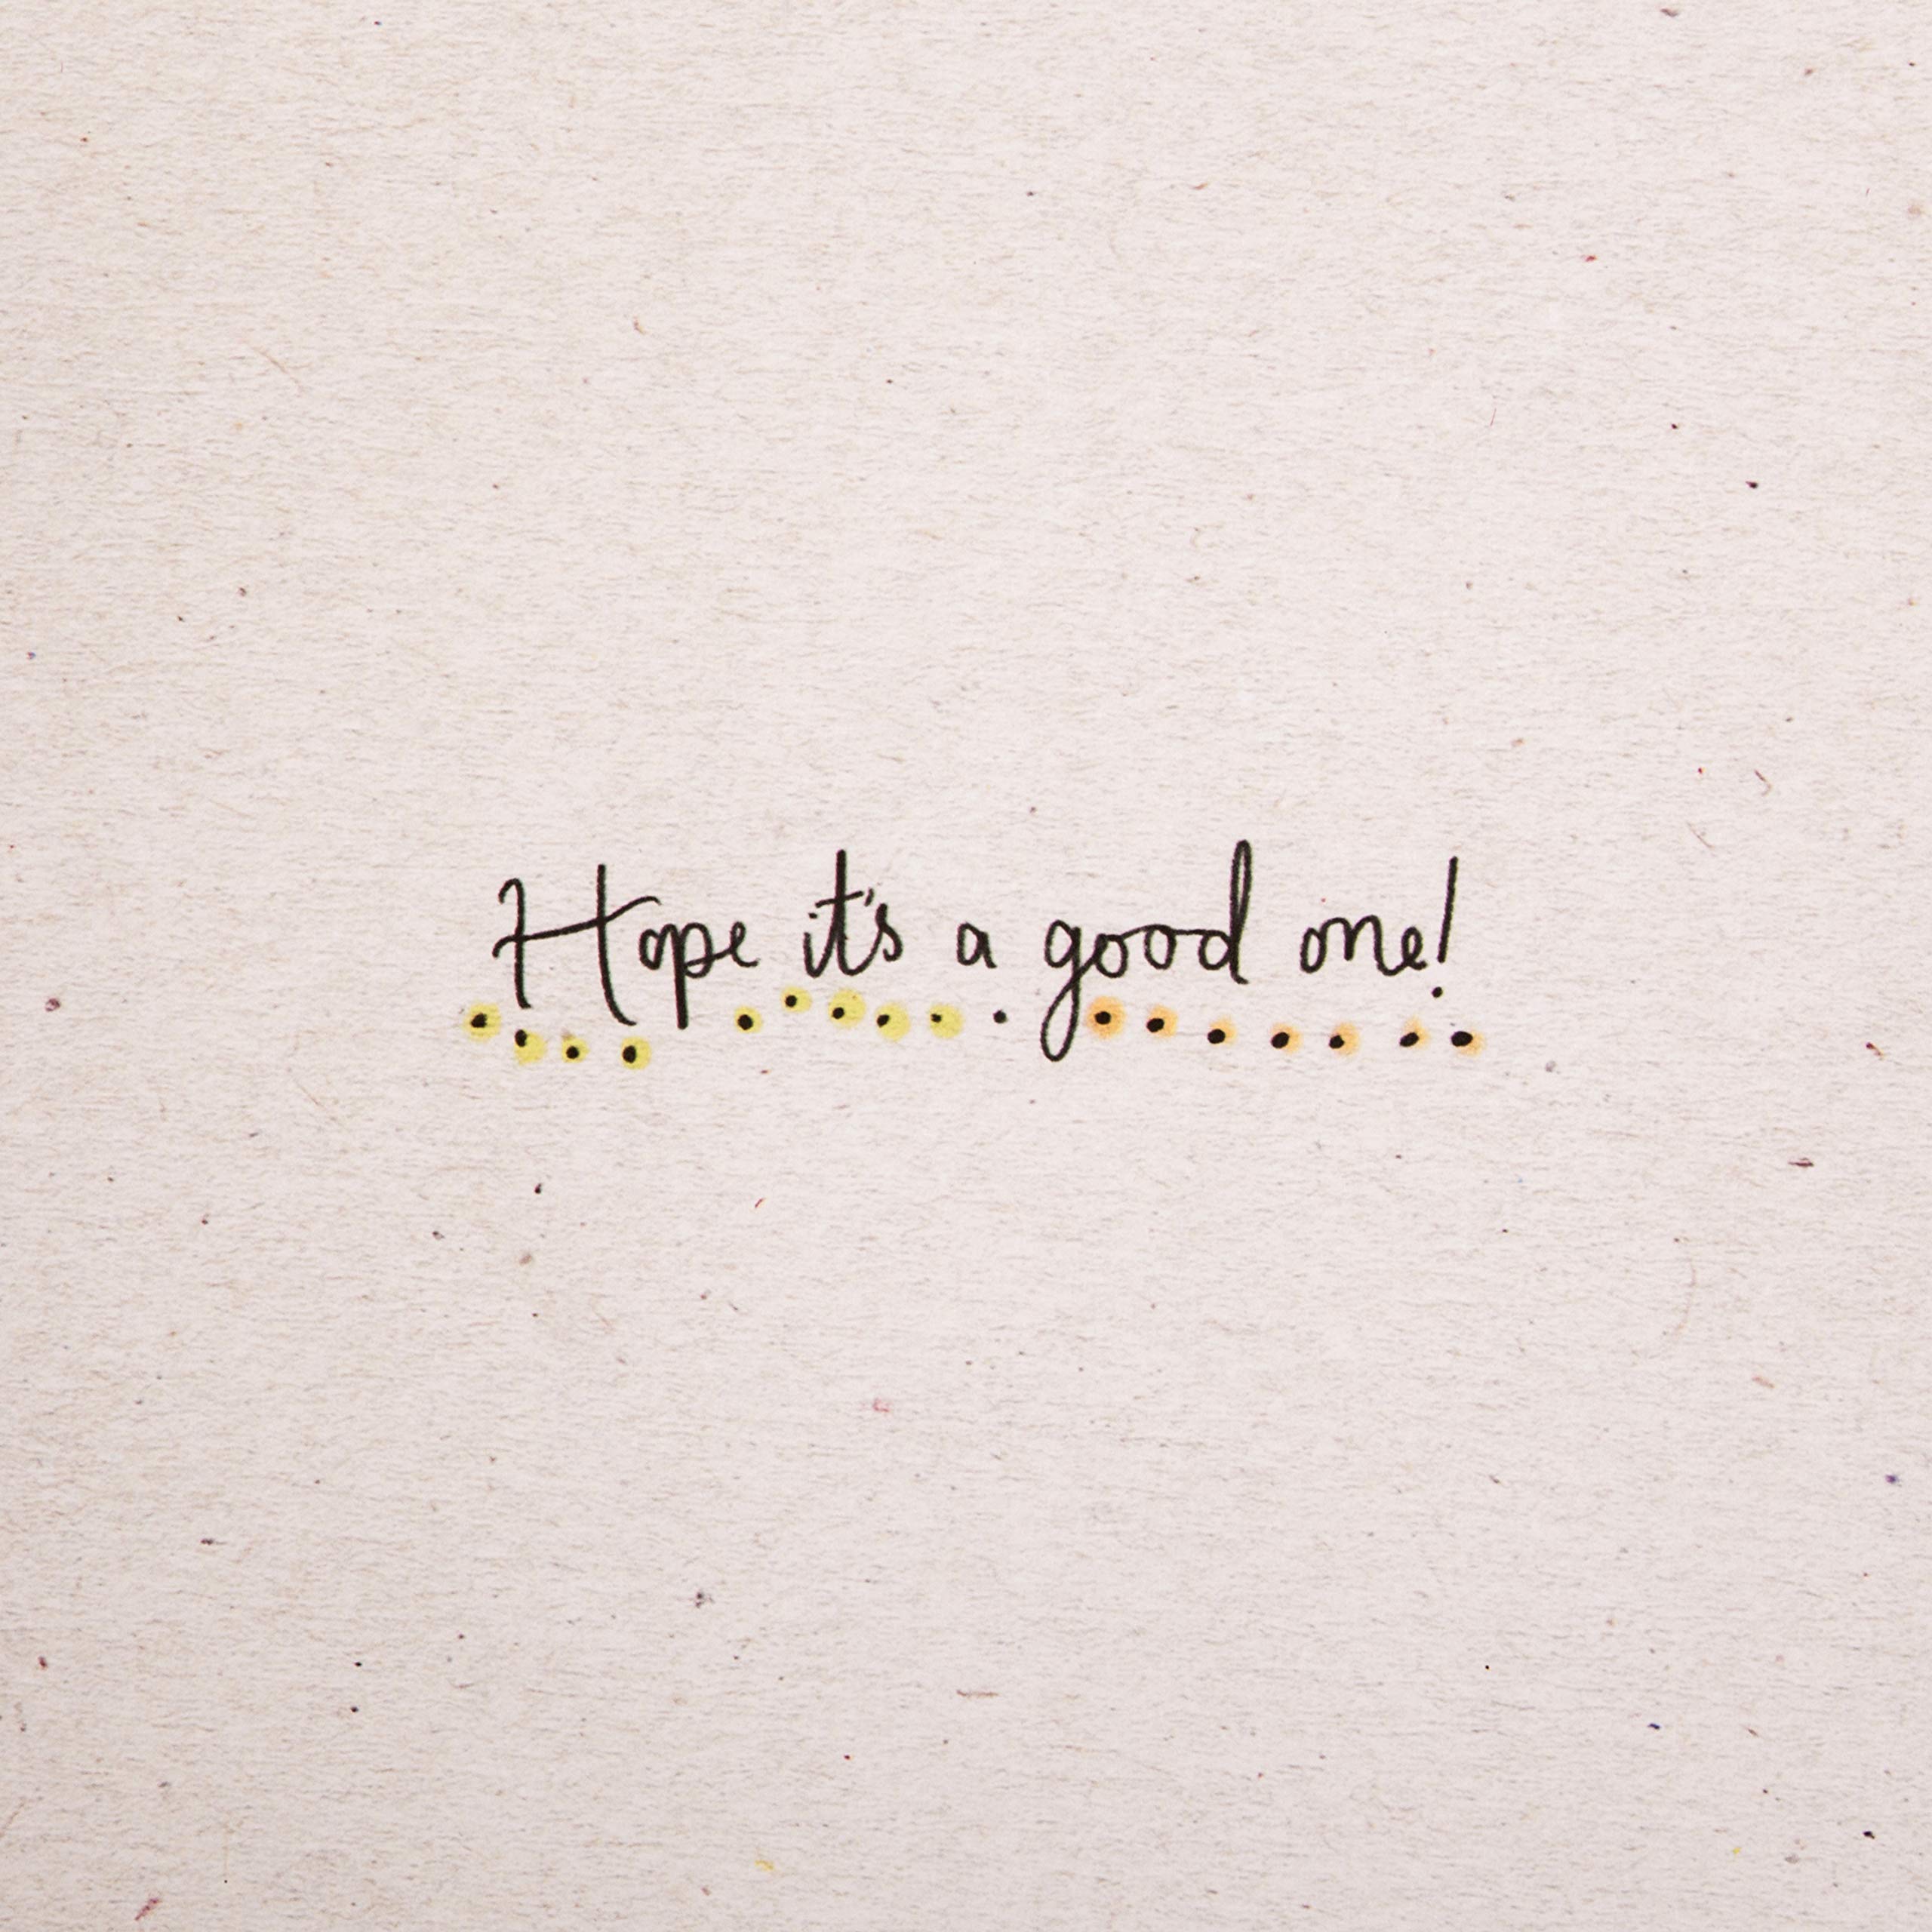 Hope it's a good one!